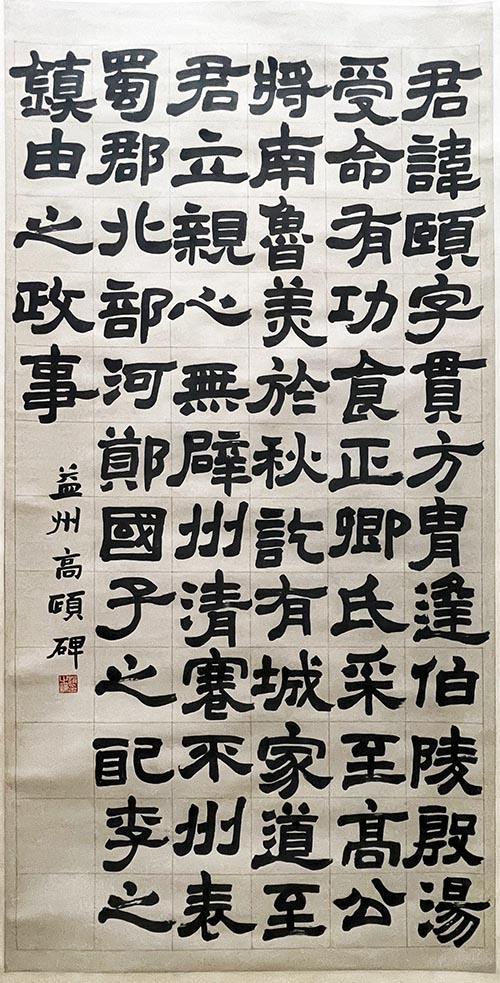 君諱頤字貫方胄逢伯陵殷湯
受命有功食正卿氏采至高公
將南魯美於秋訖有城家道至
君立親心無辟州清蹇不州表
蜀郡北部河鄭國子之配李之
鎮由之政事
益州高頤碑